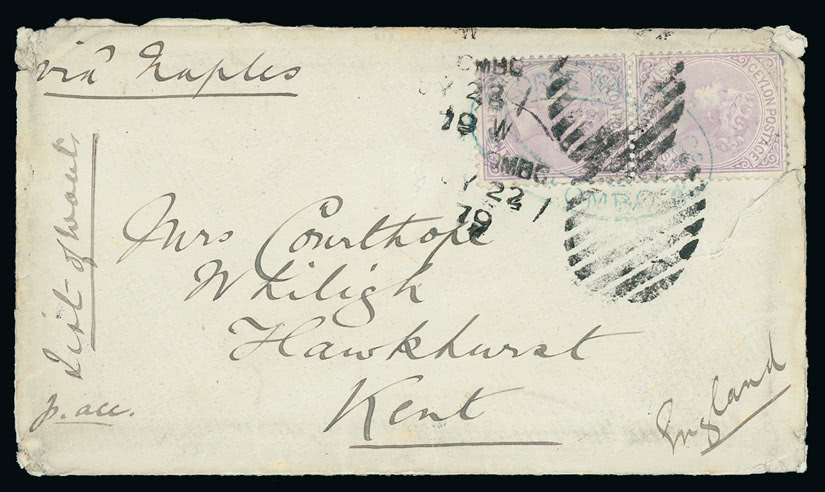 via Naples
CEYLON POSTAGE
OMBO
22
79
List of wants
p. acc.
Mrs Courthope
Whiligh
Hawkhurst
Kent
England